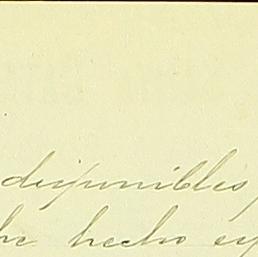 disponibles,
he hecho